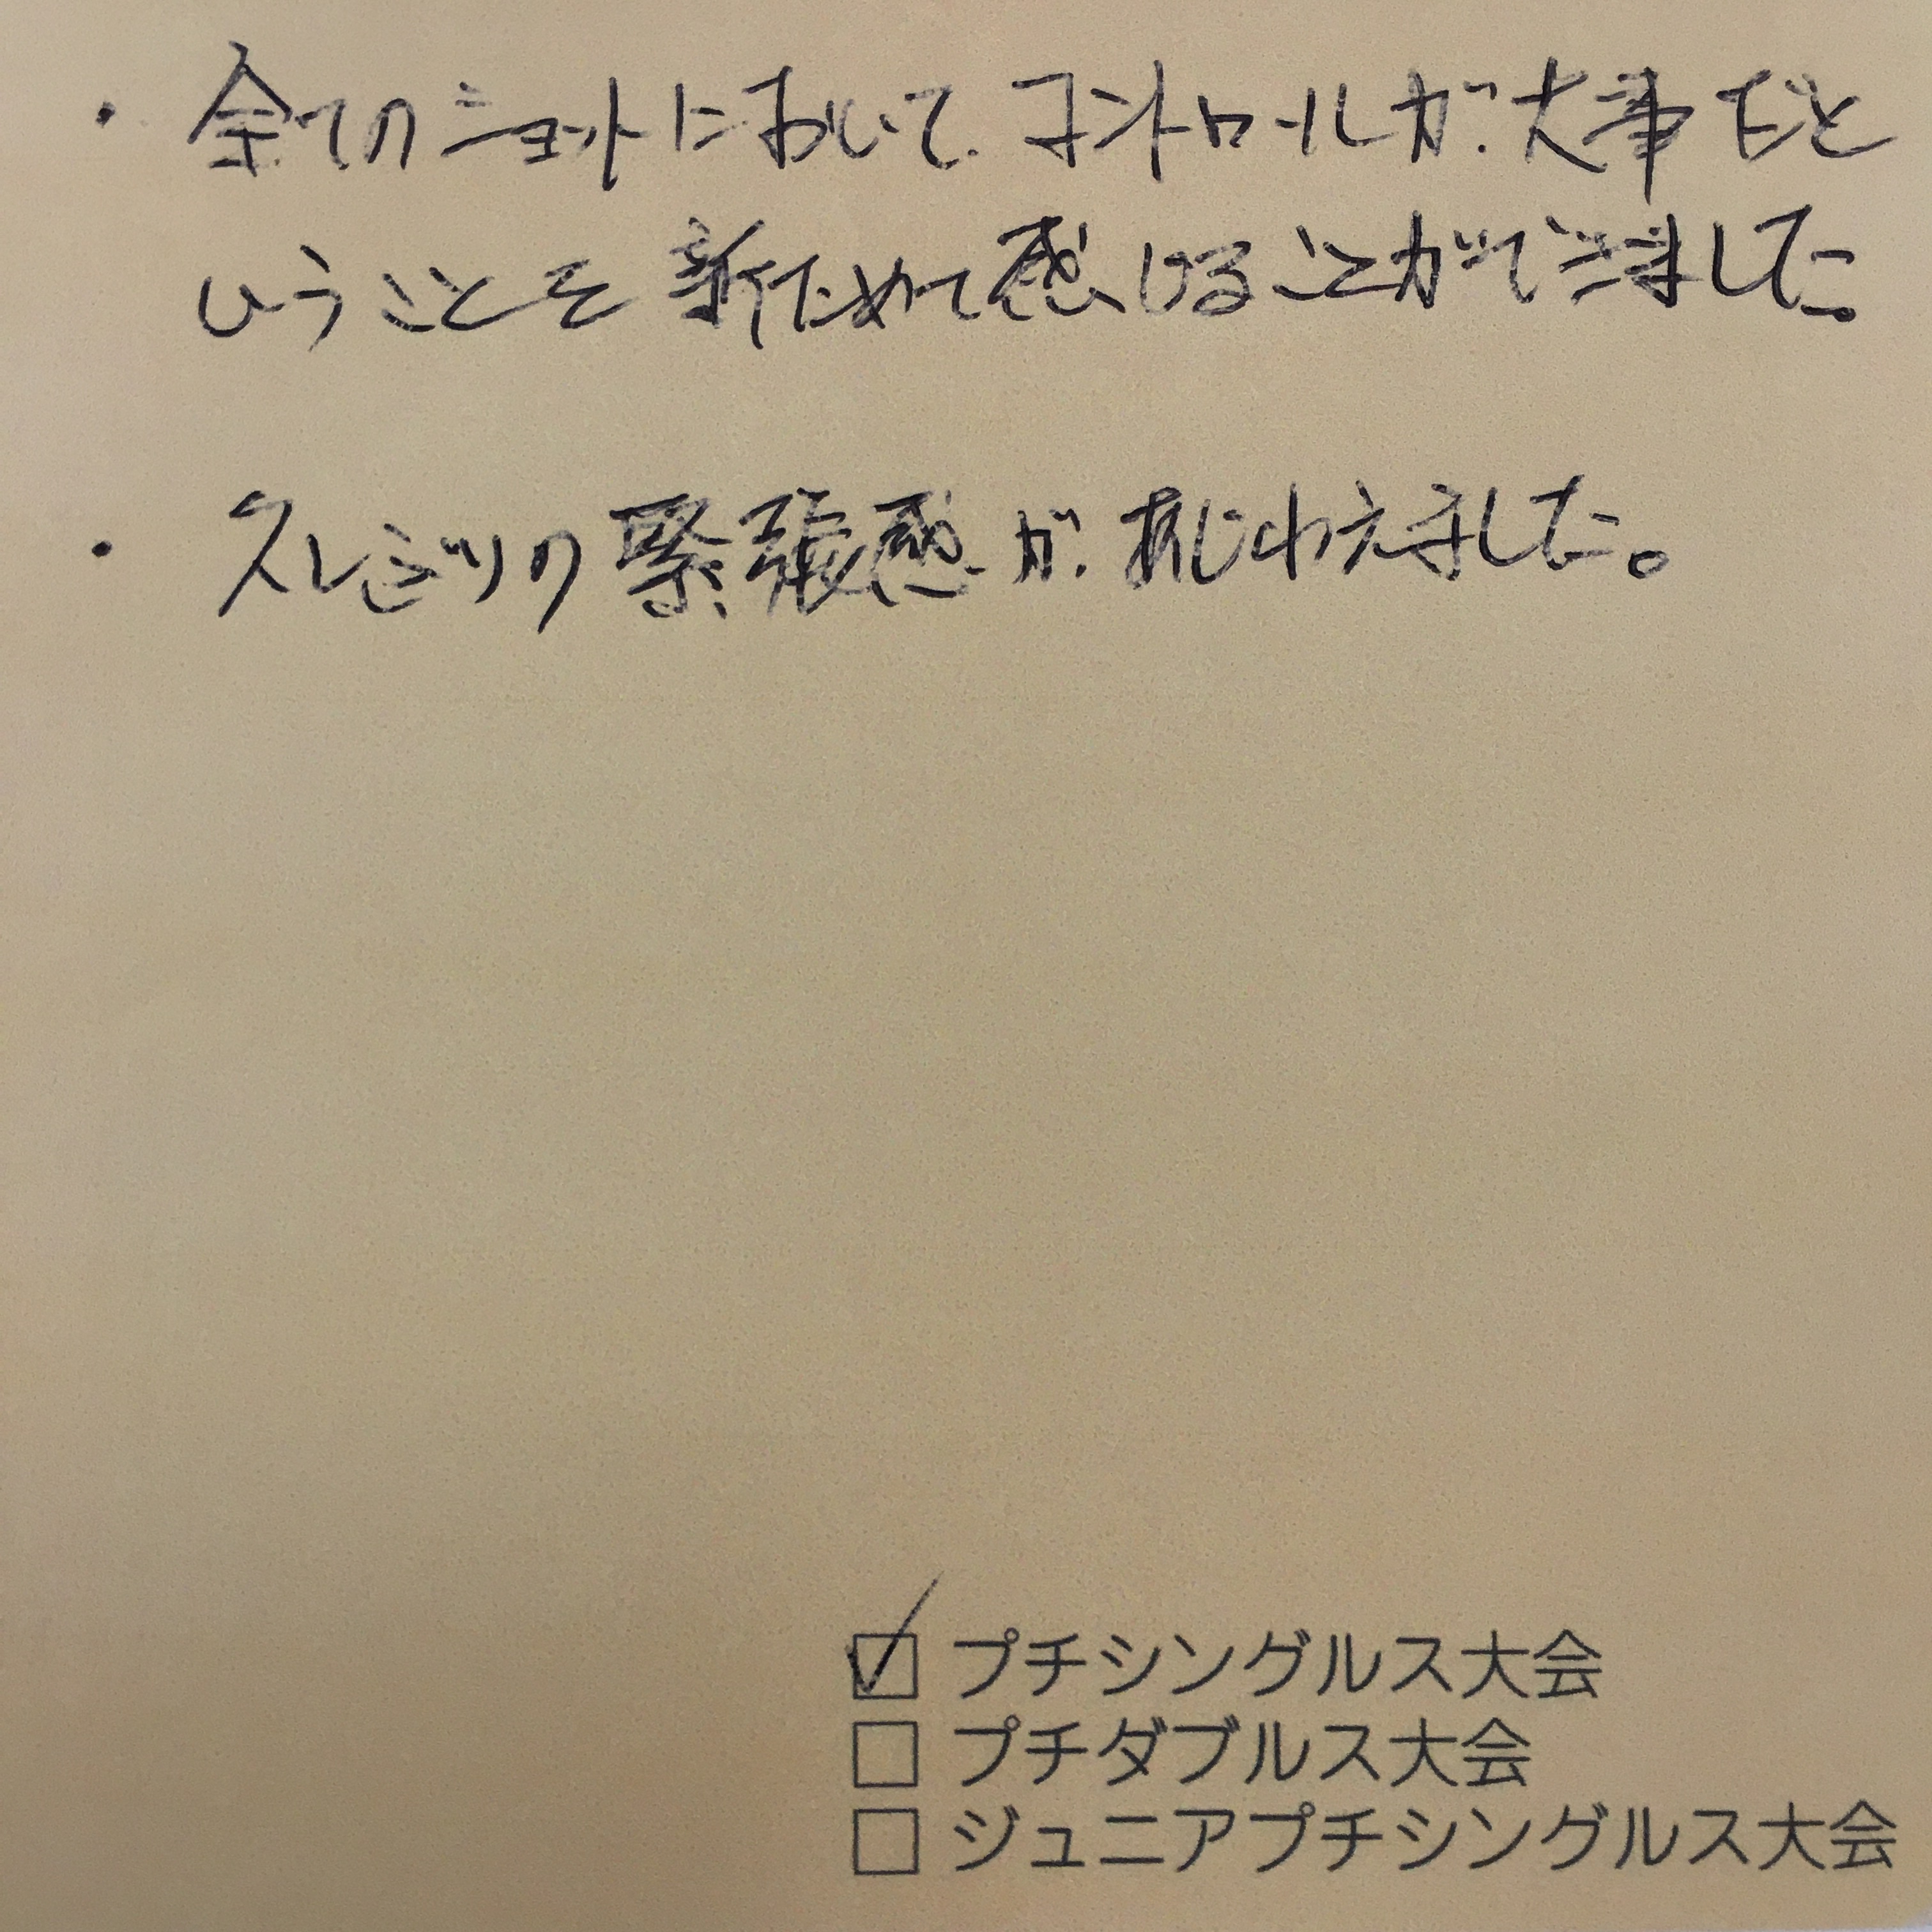 ・全てのショットにおいて、コントロールが、大事だと
いうことを新ためて感じることができました。
・久しぶりの緊張感が、あじわえました。
☑ プチシングルス大会
□ プチダブルス大会
□ ジュニアプチシングルス大会